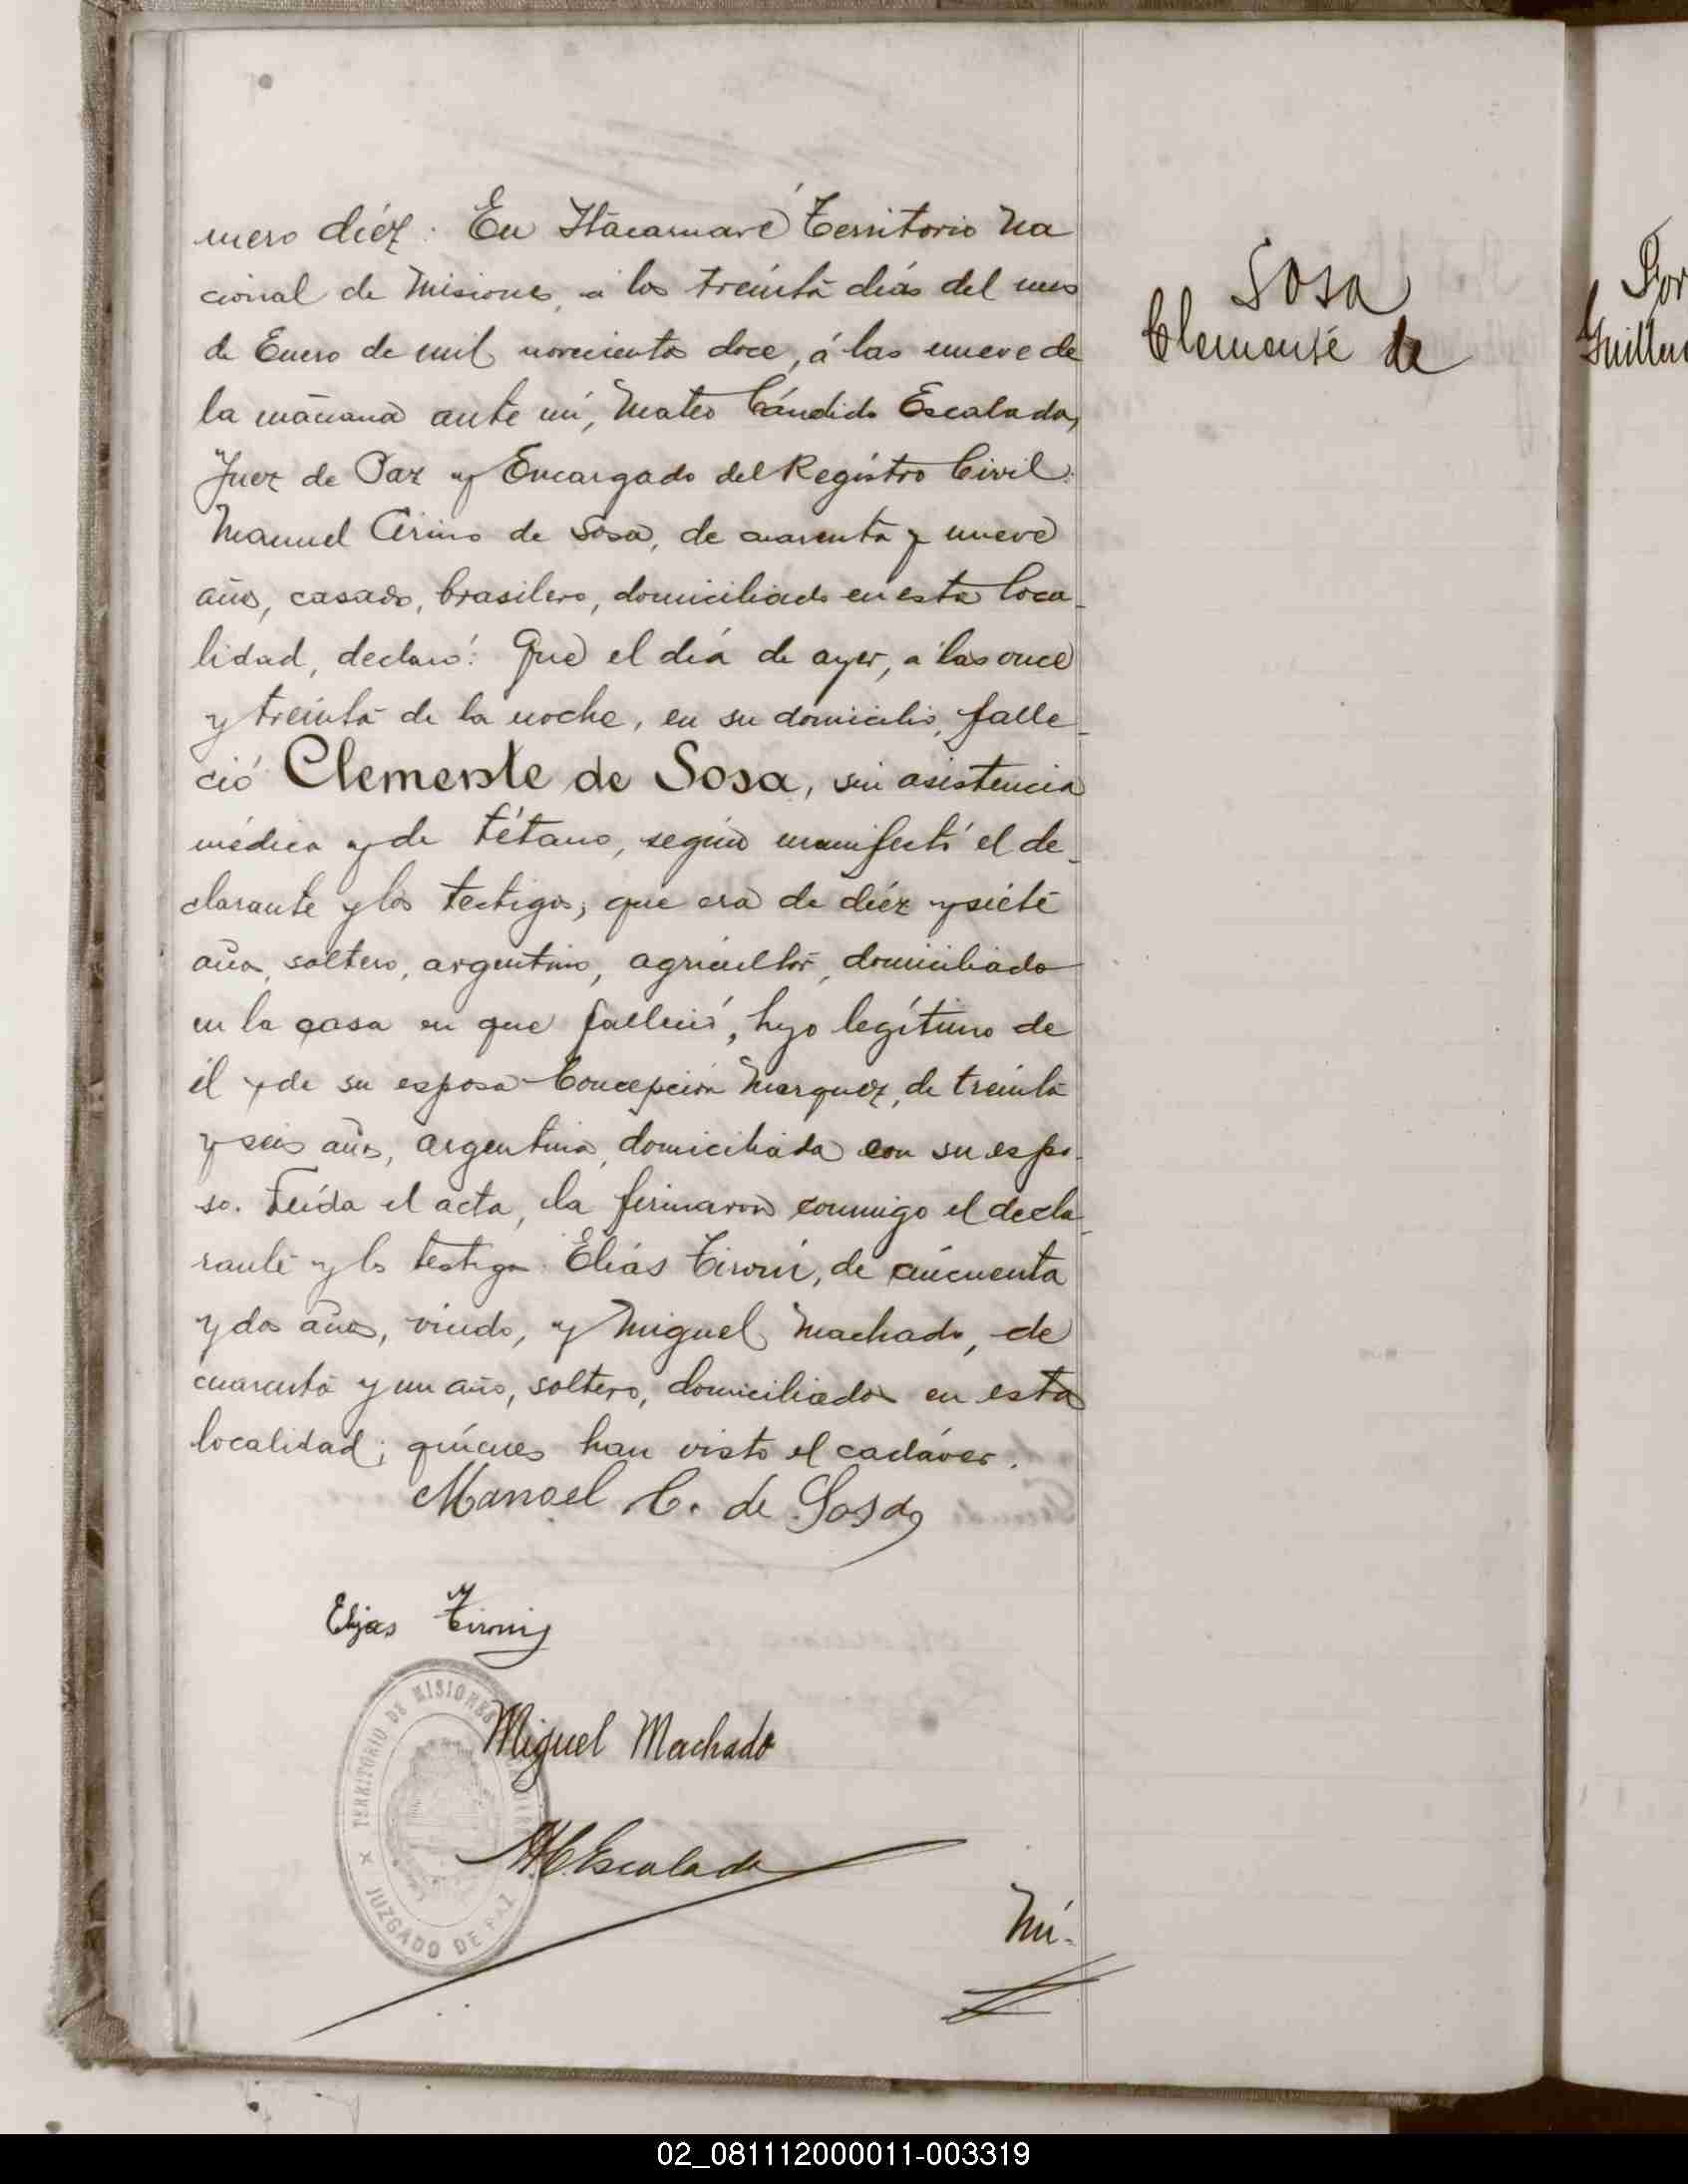 mero diéz: En Itacaruaré Territorio Na
cional de Misiones, á los treinta días del mes
de Enero de mil novecientos doce, á las nueve de
la mañana ante mí, Mateo Cándido Escalada,
Juez de Paz y Encargado del Registro Civil:
Manuel Cirino de Sosa, de cuarenta y nueve
años, casado, brasilero, domiciliado en esta loca-
lidad, declaró: Que el día de ayer, a las once
y treinta de la noche, en su domicilio, falle-
ció Clemente de Sosa, sin asistencia
médica y de tétano, según manifestó el de-
clarante y los testigos; que era de diéz y siete
años, soltero, argentino, agricultor, domiciliado
en la casa en que falleció, hijo legítimo de
él y de su esposa Concepción Marquez, de treinta
y seis años, argentina, domiciliada con su espo-
so. Leída el acta, la firmaron conmigo el decla-
rante y los testigos Elías Tironi, de cincuenta
y dos años, viudo, y Miguel Machado, de
cuarenta y un año, soltero, domiciliados en esta
localidad; quiénes han visto el cadáver.
Manoel C. de Sosa
Elias Tironi
Miguel Machado
M.C. Escalada
Nú-
Sosa
Clemente de
TERRITORIO DE MISIONES
JUZGADO DE PAZ
Guiller
02_081112000011-003319